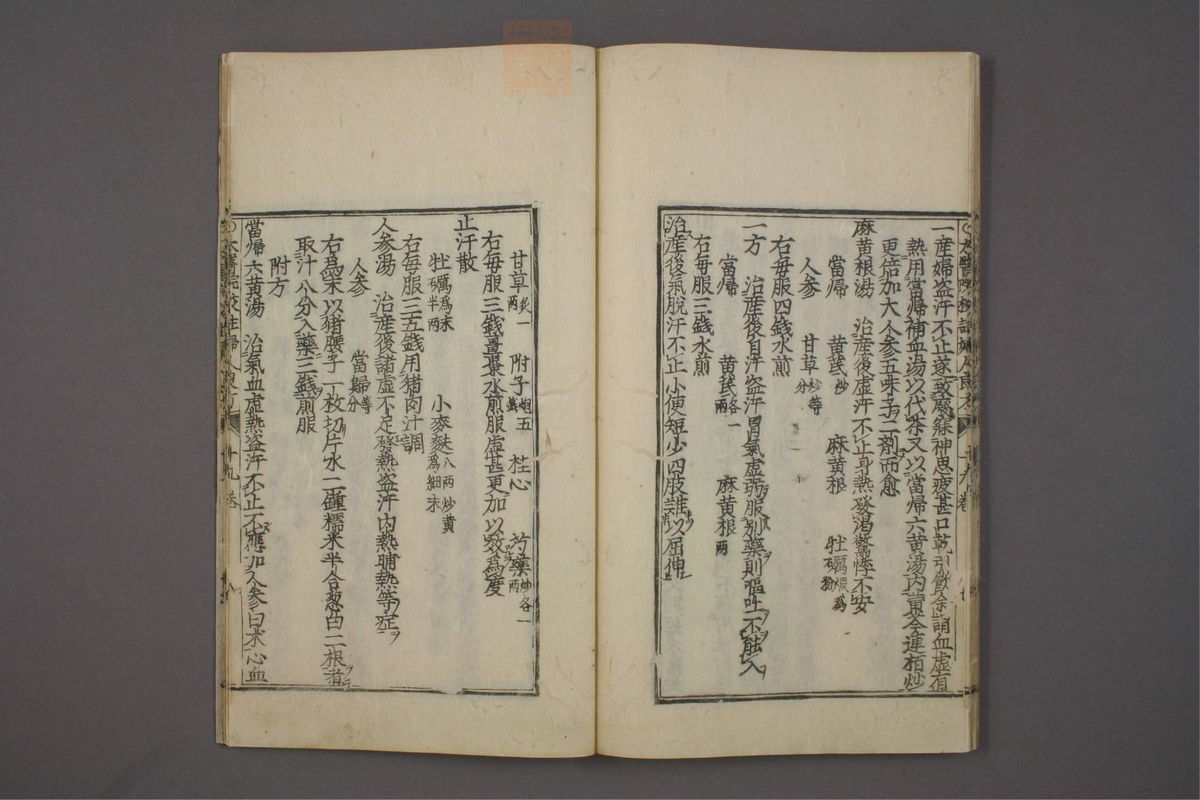 一産婦盗汗不止遂致廢寐神思疲甚口乾引飲余謂血虚有
熱用當帰補血湯以代茶又以當帰六黄湯内黄芩連栢炒
更倍加大人參五味子二剤而愈
麻黄根湯 治産後虚汗不止身熱發渇驚悸不安
當帰 黄芪炒 麻黄根 牡礪煆爲粉
人參 甘草炒等分
右毎服四錢水煎
一方 治産後自汗盗汗胃氣虚弱服別藥則嘔吐不能入
當帰 黄芪各一兩 麻黄根兩
右毎服三錢水煎
治産後氣脱汗不止小便短少四肢難以屈伸
甘草炙一兩 附子炮五錢 桂心 芍藥炒各一兩
右毎服三錢薑棗水煎服虚甚更加以效為度
止汗散
牡礪爲末半兩 小麥麩八兩炒黄爲細末
右毎服三五錢用猪肉汁調
人參湯 治産後諸虚不足發熱盗汗内熱晡熱等症
人參 當歸等分
右爲末以猪腰子一枚切片水二鍾糯米半合葱白二根煮
取汁八分入藥三錢煎服
附方
當帰六黄湯 治氣血虚熱盗汗不止不應加人參白朮心血